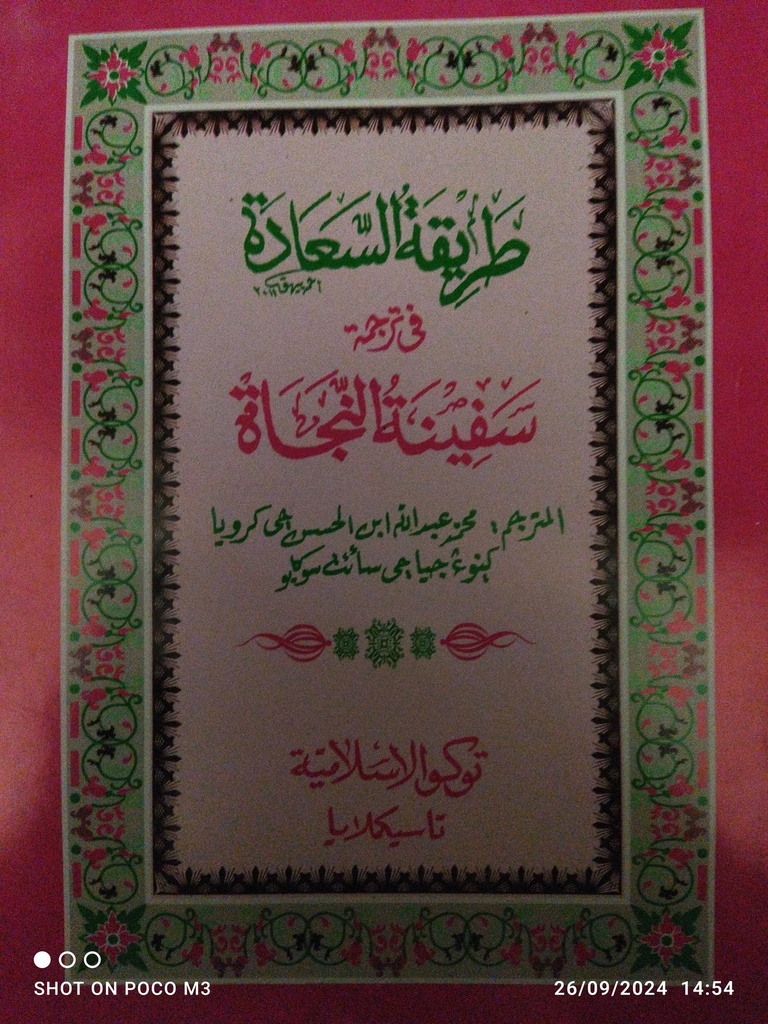 طَرِيقَةُ السَّعَادَةِ
فى ترجمة
سَفِينَةُ النَّجَاةِ
المترجم: محمد عبدالله ابن الحسن
توكو الاسلامية
تاسيكلايا
SHOT ON POCO M3
26/09/2024 14:54